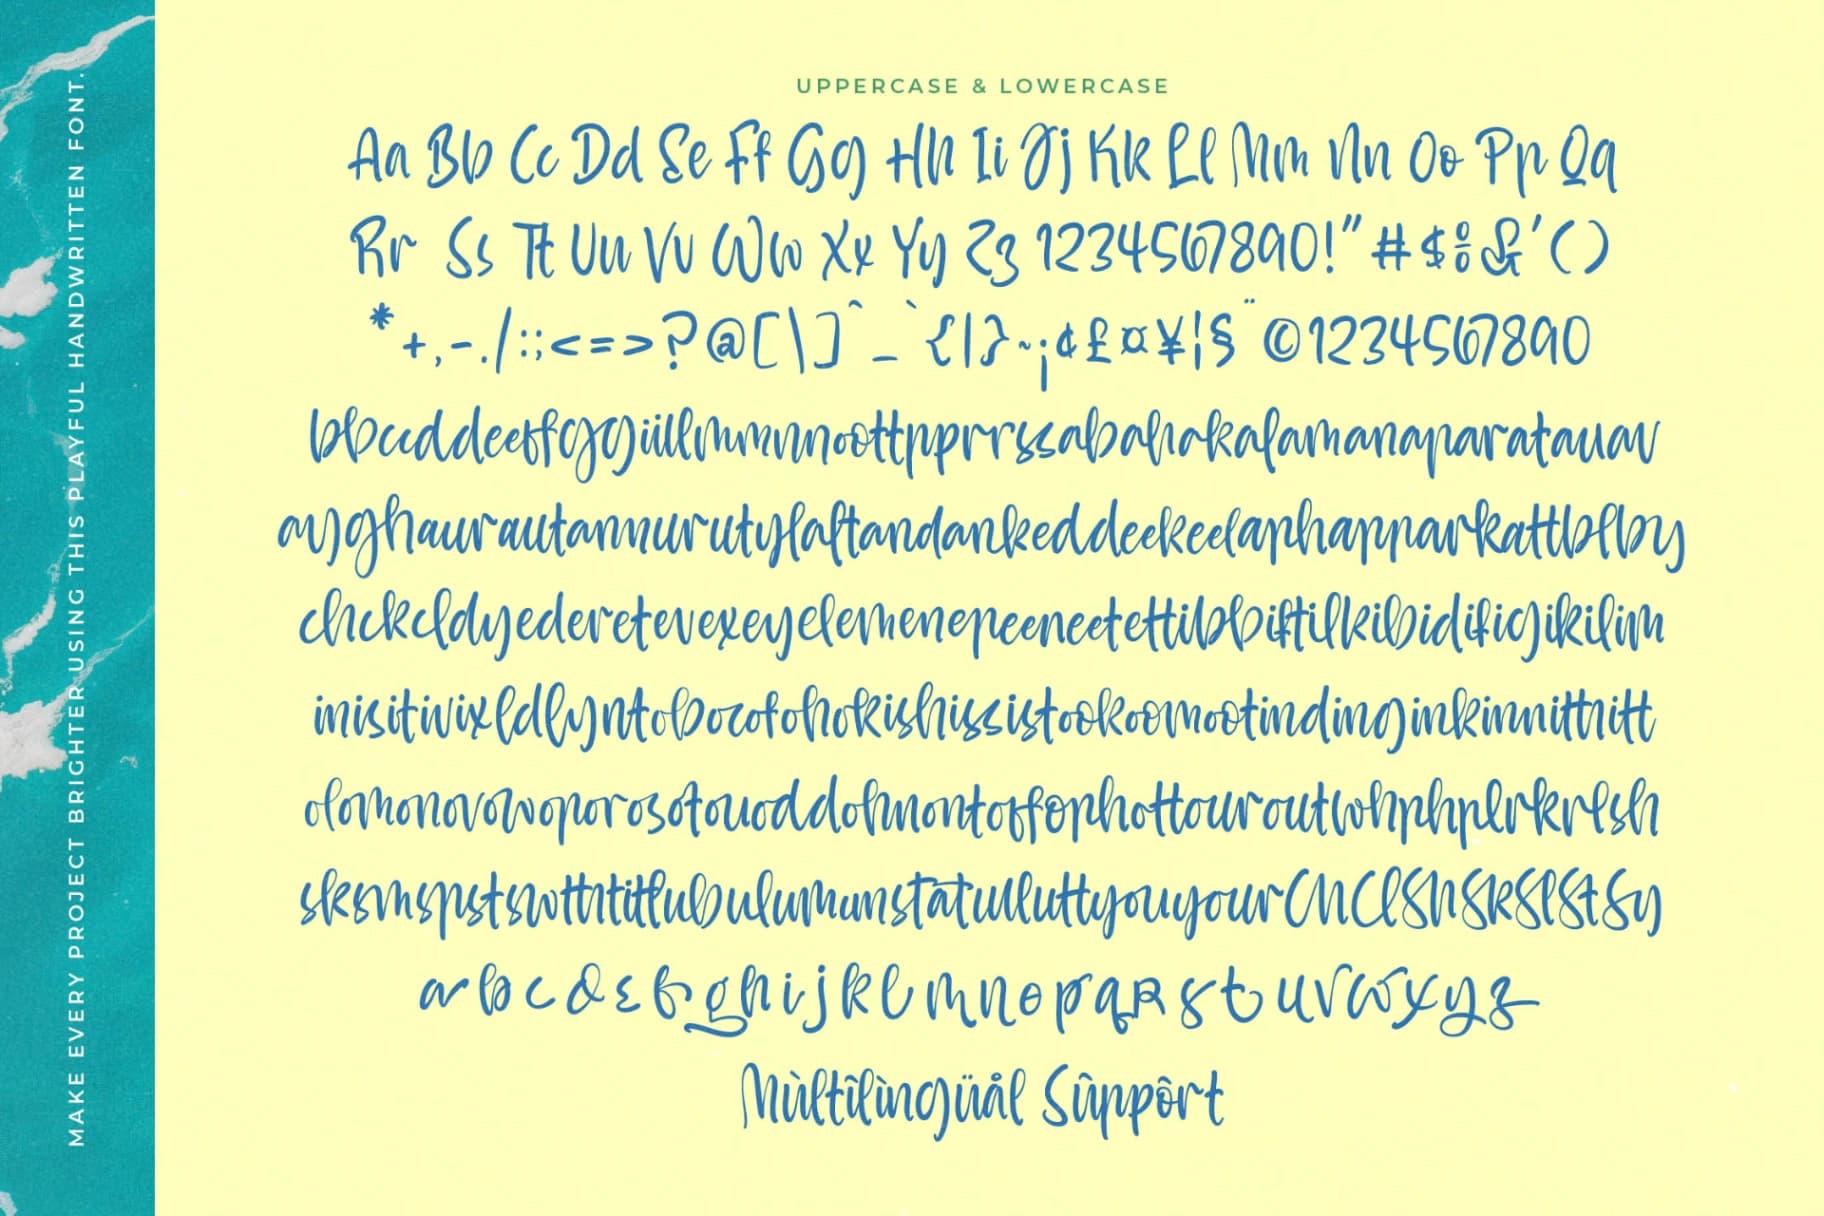 MAKE EVERY PROJECT BRIGHTER USING THIS PLAYFUL HANDWRITTEN FONT.
UPPERCASE & LOWERCASE
Aa Bb Cc Dd Ee Ff Gg Hh Ii Jj Kk Ll Mm Nn Oo Pp Qq
Rr Ss Tt Uu Vv Ww Xx Yy Zz 1234567890!"#$%&'()
*+,-./:;<=>?@[\]^_`{|}~¡¢£¤¥¦§¨©1234567890
bbccddeeffggiillmmnnoottpprrssabahakalamanaparatauav
ayghaurautannurutylaftandankeddeekeelaphapparkattblby
chckcldyederetevexeyelemenepeeneetettibbiftilkibidifigikilim
inisitivixldlyntobocofohokishississtookoomootindinginkinnittritt
olomonovowoporosotouoddofmontoffophottouroutwhphplrkrlsh
sksmspstswthtitlubulumunstatulluttyouyourChClShSkSlStSy
a b c d e f g h i j k l m n o p q R s t u v w x y z
Mùltîlìngüål Sûppôrt